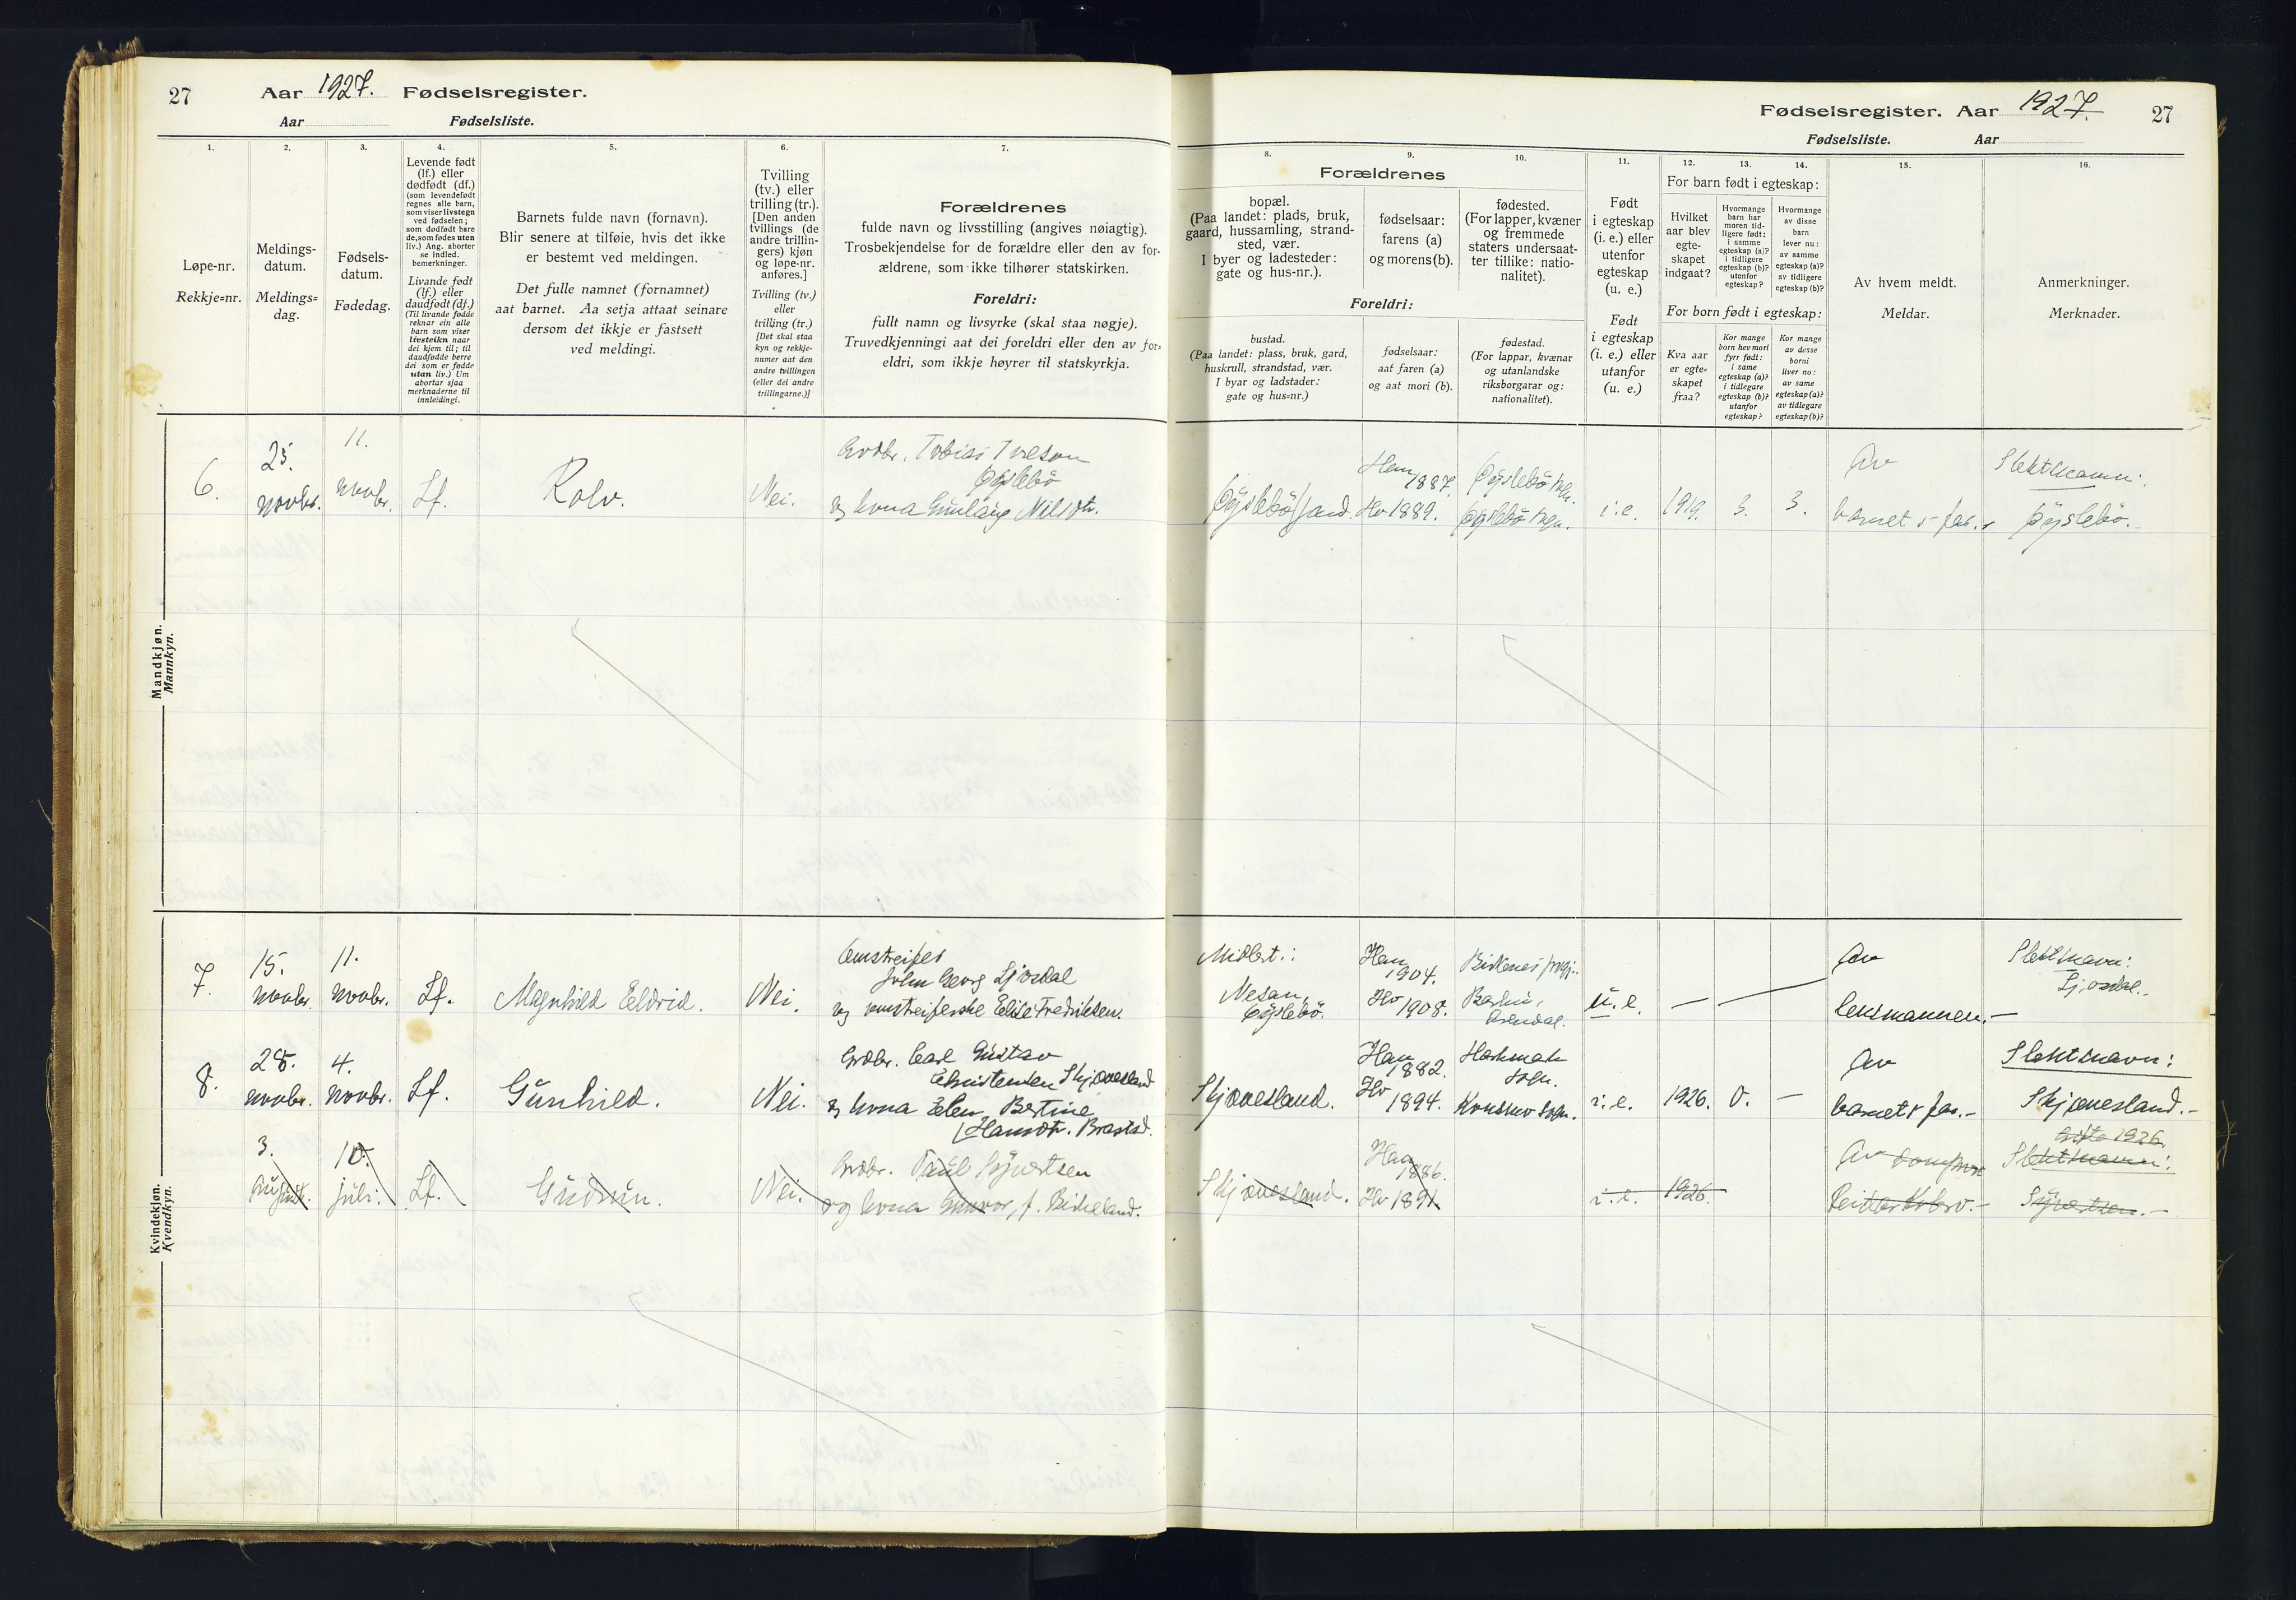 27 Aar 1927. Fødselsregister.
Aar Fødselsliste.
Fødselsregister. Aar 1927. 27
Fødselsliste. Aar
1.
Løpe-nr.
Rekkje=nr.
2.
Meldings-
datum.
Meldings=
dag.
3.
Fødsels-
datum.
Fødedag.
4.
Levende født
(lf.) eller
dødfødt (df.)
(som levendefødt
regnes alle barn,
som viser livstegn
ved fødselen;
som dødfødt bare
de, som fødes uten
liv.) Ang. aborter
se indled.
bemerkninger.
Livande født
(lf.) eller
daudfødt (df.)
(Til livande fødde
reknar ein alle
barn som viser
livsteikn naar
dei kjem til; til
daudfødde berre
dei som er fødde
utan liv.) Um
abortar sjaa
merknaderne til
innleidingi.
5.
Barnets fulde navn (fornavn).
Blir senere at tilføie, hvis det ikke
er bestemt ved meldingen.
Det fulle namnet (fornamnet)
aat barnet. Aa setja attaat seinare
dersom det ikkje er fastsett
ved meldingi.
6.
Tvilling
(tv.) eller
trilling (tr.).
[Den anden
tvillings (de
andre trillin-
gers) kjøn
og løpe-nr.
anføres.]
Tvilling (tv.)
eller
trilling (tr.)
[Det skal staa
kyn og rekkje-
numer aat den
andre tvillingen
(eller dei andre
trillingarne.)]
7.
Forældrenes
fulde navn og livsstilling (angives nøiagtig).
Trosbekjendelse for de forældre eller den av for-
ældrene, som ikke tilhører statskirken.
Foreldri:
fullt namn og livsyrke (skal staa nøgje).
Truvedkjenningi aat dei foreldri eller den av for=
eldri, som ikkje høyrer til statskyrkja.
Forældrenes
8.
bopæl.
(Paa landet: plads, bruk,
gaard, hussamling, strand-
sted, vær.
I byer og ladesteder:
gate og hus-nr.).
9.
fødselsaar:
farens (a)
og morens (b).
10.
fødested.
(For lapper, kvæner
og fremmede
staters undersaat-
ter tillike: natio-
nalitet).
Foreldri:
bustad.
(Paa landet: plass, bruk, gard,
huskrull, strandstad, vær.
I byar og ladstader:
gate og hus=nr.)
fødselsaar:
aat faren (a)
og aat mori (b).
fødestad.
(For lappar, kvænar
og utanlandske
riksborgarar og:
nationalitet).
11.
Født
i egteskap
(i. e.) eller
utenfor
egteskap
(u. e.)
Født
i egteskap
(i. e.) eller
utanfor
(u. e.)
12. 13. 14.
For barn født i egteskap:
Hvilket
aar blev
egte-
skapet
indgaat?
Hvormange
barn har
moren tid-
ligere født:
i samme
egteskap (a)?
i tidligere
egteskap (b)?
utenfor
egteskap?
Hvormange
av disse
barn
lever nu:
av samme
egteskap (a)?
av tidligere
egteskap (b)?
For born født i egteskap:
Kva aar
er egte=
skapet
fraa?
Kor mange
born hev mori
fyrr født:
i same
egteskap (a)?
i tidlegare
egteskap (b)?
utanfor
egteskap?
Kor mange
av desse
borni
liver no:
av same
egteskap (a)?
av tidlegare
egteskap (b)?
15.
Av hvem meldt.
Meldar.
16.
Anmerkninger.
Merknader.
Mandkjøn.
Mannkyn.
6. 25. novbr. 11. novbr. Lf. Rolv. Nei.
Grdbr. Tobias Tveson
Øyslebø
og kona Gunlaug Nilsdtr.
Øyslebø, Land. Han 1887. Hv 1889. Øyslebø sogn. Øyslebø sogn. i.e. 1919. 3. 3. Av barnets far. Slektnamn: Øyslebø.
Kvindekjøn.
Kvendkyn.
7. 15. novbr. 11. novbr. Lf. Magnhild Eldrid. Nei.
Omstreifer
John Georg Ljosdal
og omstreiferske Elise Fredriksen.
Midlert.: Nesan, Øyslebø. Han 1904. Hv 1908. Birkenes Arendal. u.e. — Av lensmannen. — Slektnavn: Ljosdal.
8. 28. novbr. 4. novbr. Lf. Gunhild. Nei.
Grdbr. Carl Gustav
Christensen Skjævesland
og kona Elen Bertine
Hansdtr. Brastad.
Skjævesland. Han 1882. Hv 1894. Harkmark sogn. Konsmo sogn. i.e. 1926. 0. — Av barnets far. — Slektnavn: Skjævesland. —
3. august. 10. juli. Lf. Gudrun. Nei.
Grdbr. Paul Syvertsen
og kona Gunvor, f. Birkeland.
Skjævesland. Han 1886. Hv 1891. i.e. 1926. Av Slektnavn: Syvertsen. —